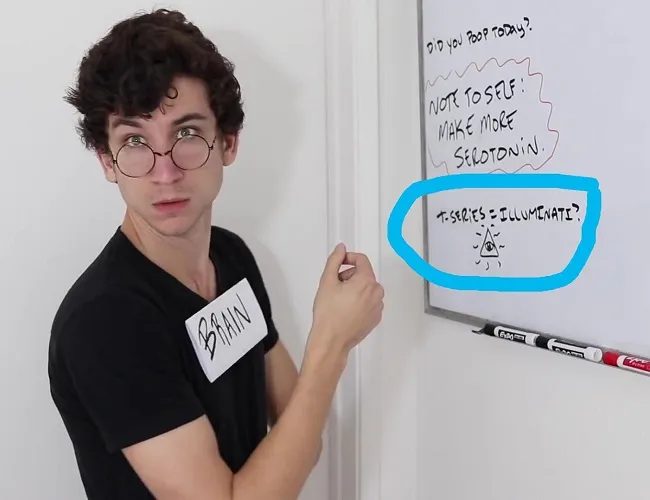 DID YOU POOP TODAY?
NOTE TO SELF:
MAKE MORE
SEROTONIN.
T-SERIES = ILLUMINATI?
BRAIN
EXPO
EXPO